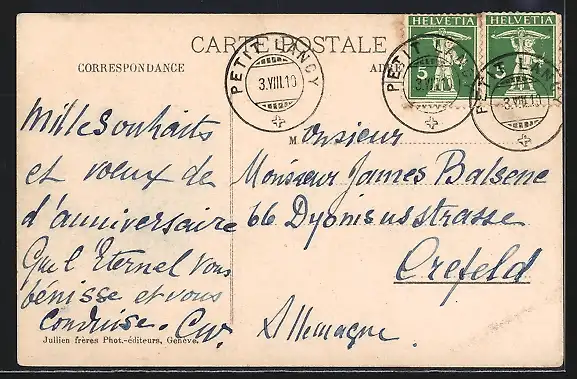 CARTE POSTALE
CORRESPONDANCE
HELVETIA
HELVETIA
5
5
PETIT LANCY
3.VIII.10
PETIT LANCY
3.VIII.10
PETIT LANCY
3.VIII.10
Mille souhaits
et voeux de
d'anniversaire
Que l'Éternel vous
bénisse et vous
conduise. CW.
Monsieur
Monsieur James Balsene
66 Dyonisusstrasse
Crefeld
Allemagne.
Jullien frères Phot.-éditeurs, Genève.